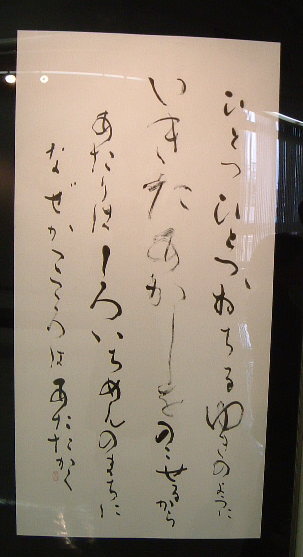 ひとつひとつ、おちるゆきのように
いきたあかしをのこせるから
あたりはしろいちめんのまちに
なぜかこころはあたたかく